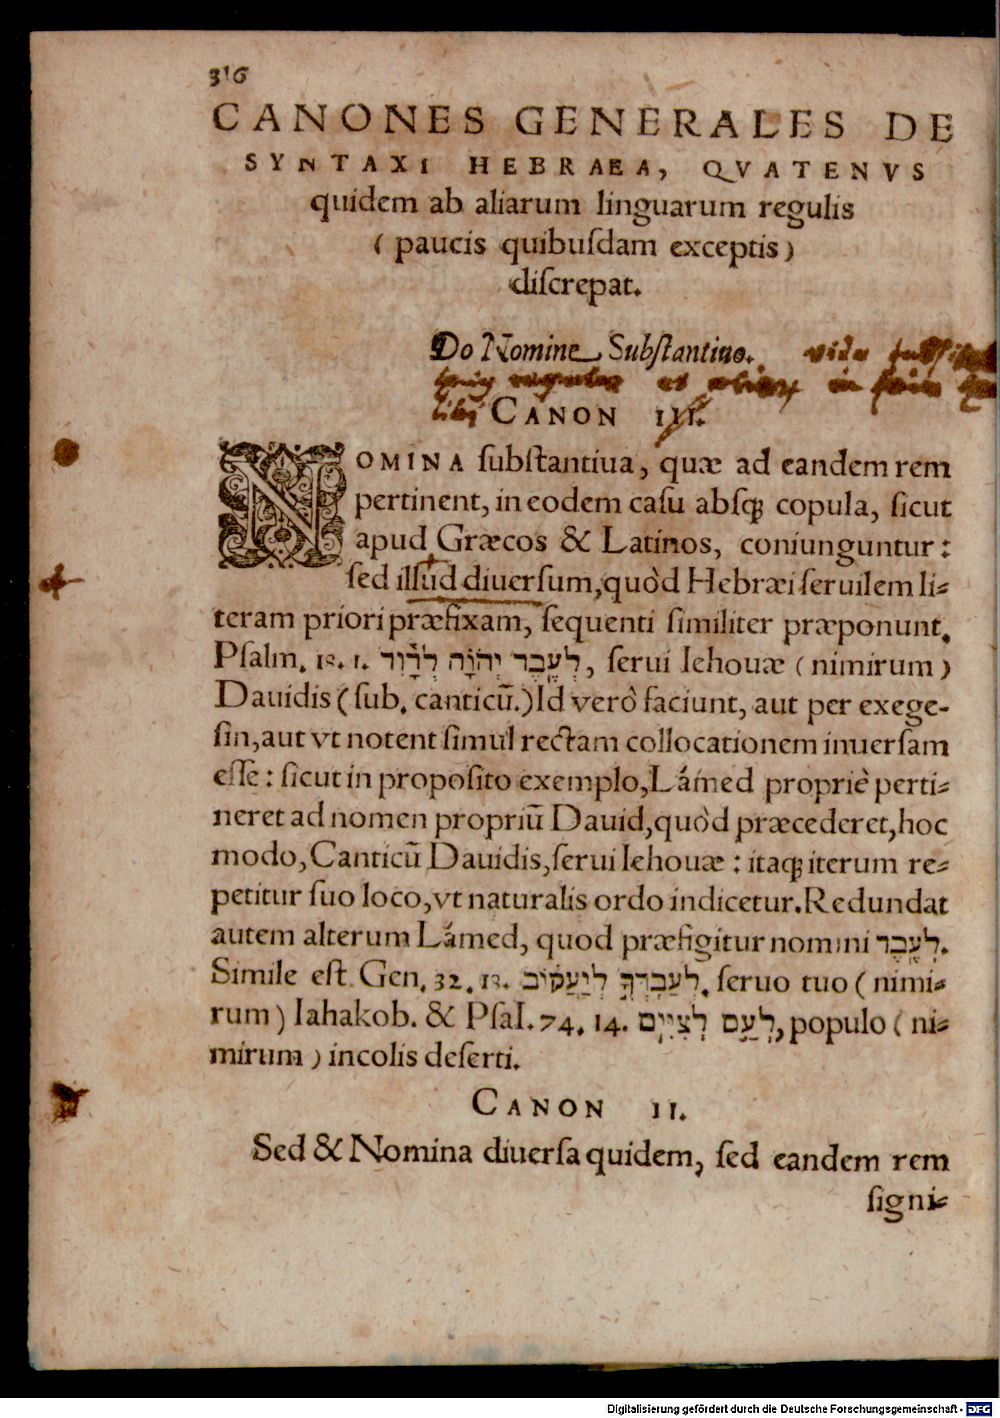 316
CANONES GENERALES DE
SYNTAXI HEBRAEA, QVATENVS
quidem ab aliarum linguarum regulis
( paucis quibuſdam exceptis )
diſcrepat.
Do Nomine Subſtantiuo. vide
CANON III.
NOMINA ſubſtantiua, quæ ad eandem rem
pertinent, in eodem caſu abſq; copula, ſicut
apud Græcos & Latinos, coniunguntur:
ſed illud diuerſum, quòd Hebræi ſeruilem li-
teram priori præfixam, ſequenti ſimiliter præponunt.
Pſalm. 18. 1. לְעֶבֶד יְהוָֹה לְדָוִד, ſerui Iehouæ ( nimirum )
Dauidis ( ſub. canticũ.) Id verò faciunt, aut per exege-
ſin, aut vt notent ſimul rectam collocationem inuerſam
eſſe: ſicut in propoſito exemplo, Lámed propriè perti-
neret ad nomen propriũ Dauid, quòd præcederet, hoc
modo, Canticũ Dauidis, ſerui Iehouæ: itaq; iterum re-
petitur ſuo loco, vt naturalis ordo indicetur. Redundat
autem alterum Lámed, quod præfigitur nomini לְעֶבֶד.
Simile eſt Gen. 32. 18. לְעַבְדְּךָ לְיַעֲקֹוב. ſeruo tuo ( nimi-
rum ) Iahakob. & Pſal. 74. 14. לְעַם לְצִיִּים, populo ( ni-
mirum ) incolis deſerti.
CANON II.
Sed & Nomina diuerſa quidem, ſed eandem rem
ſigni-
Digitalisierung gefördert durch die Deutsche Forschungsgemeinschaft - DFG